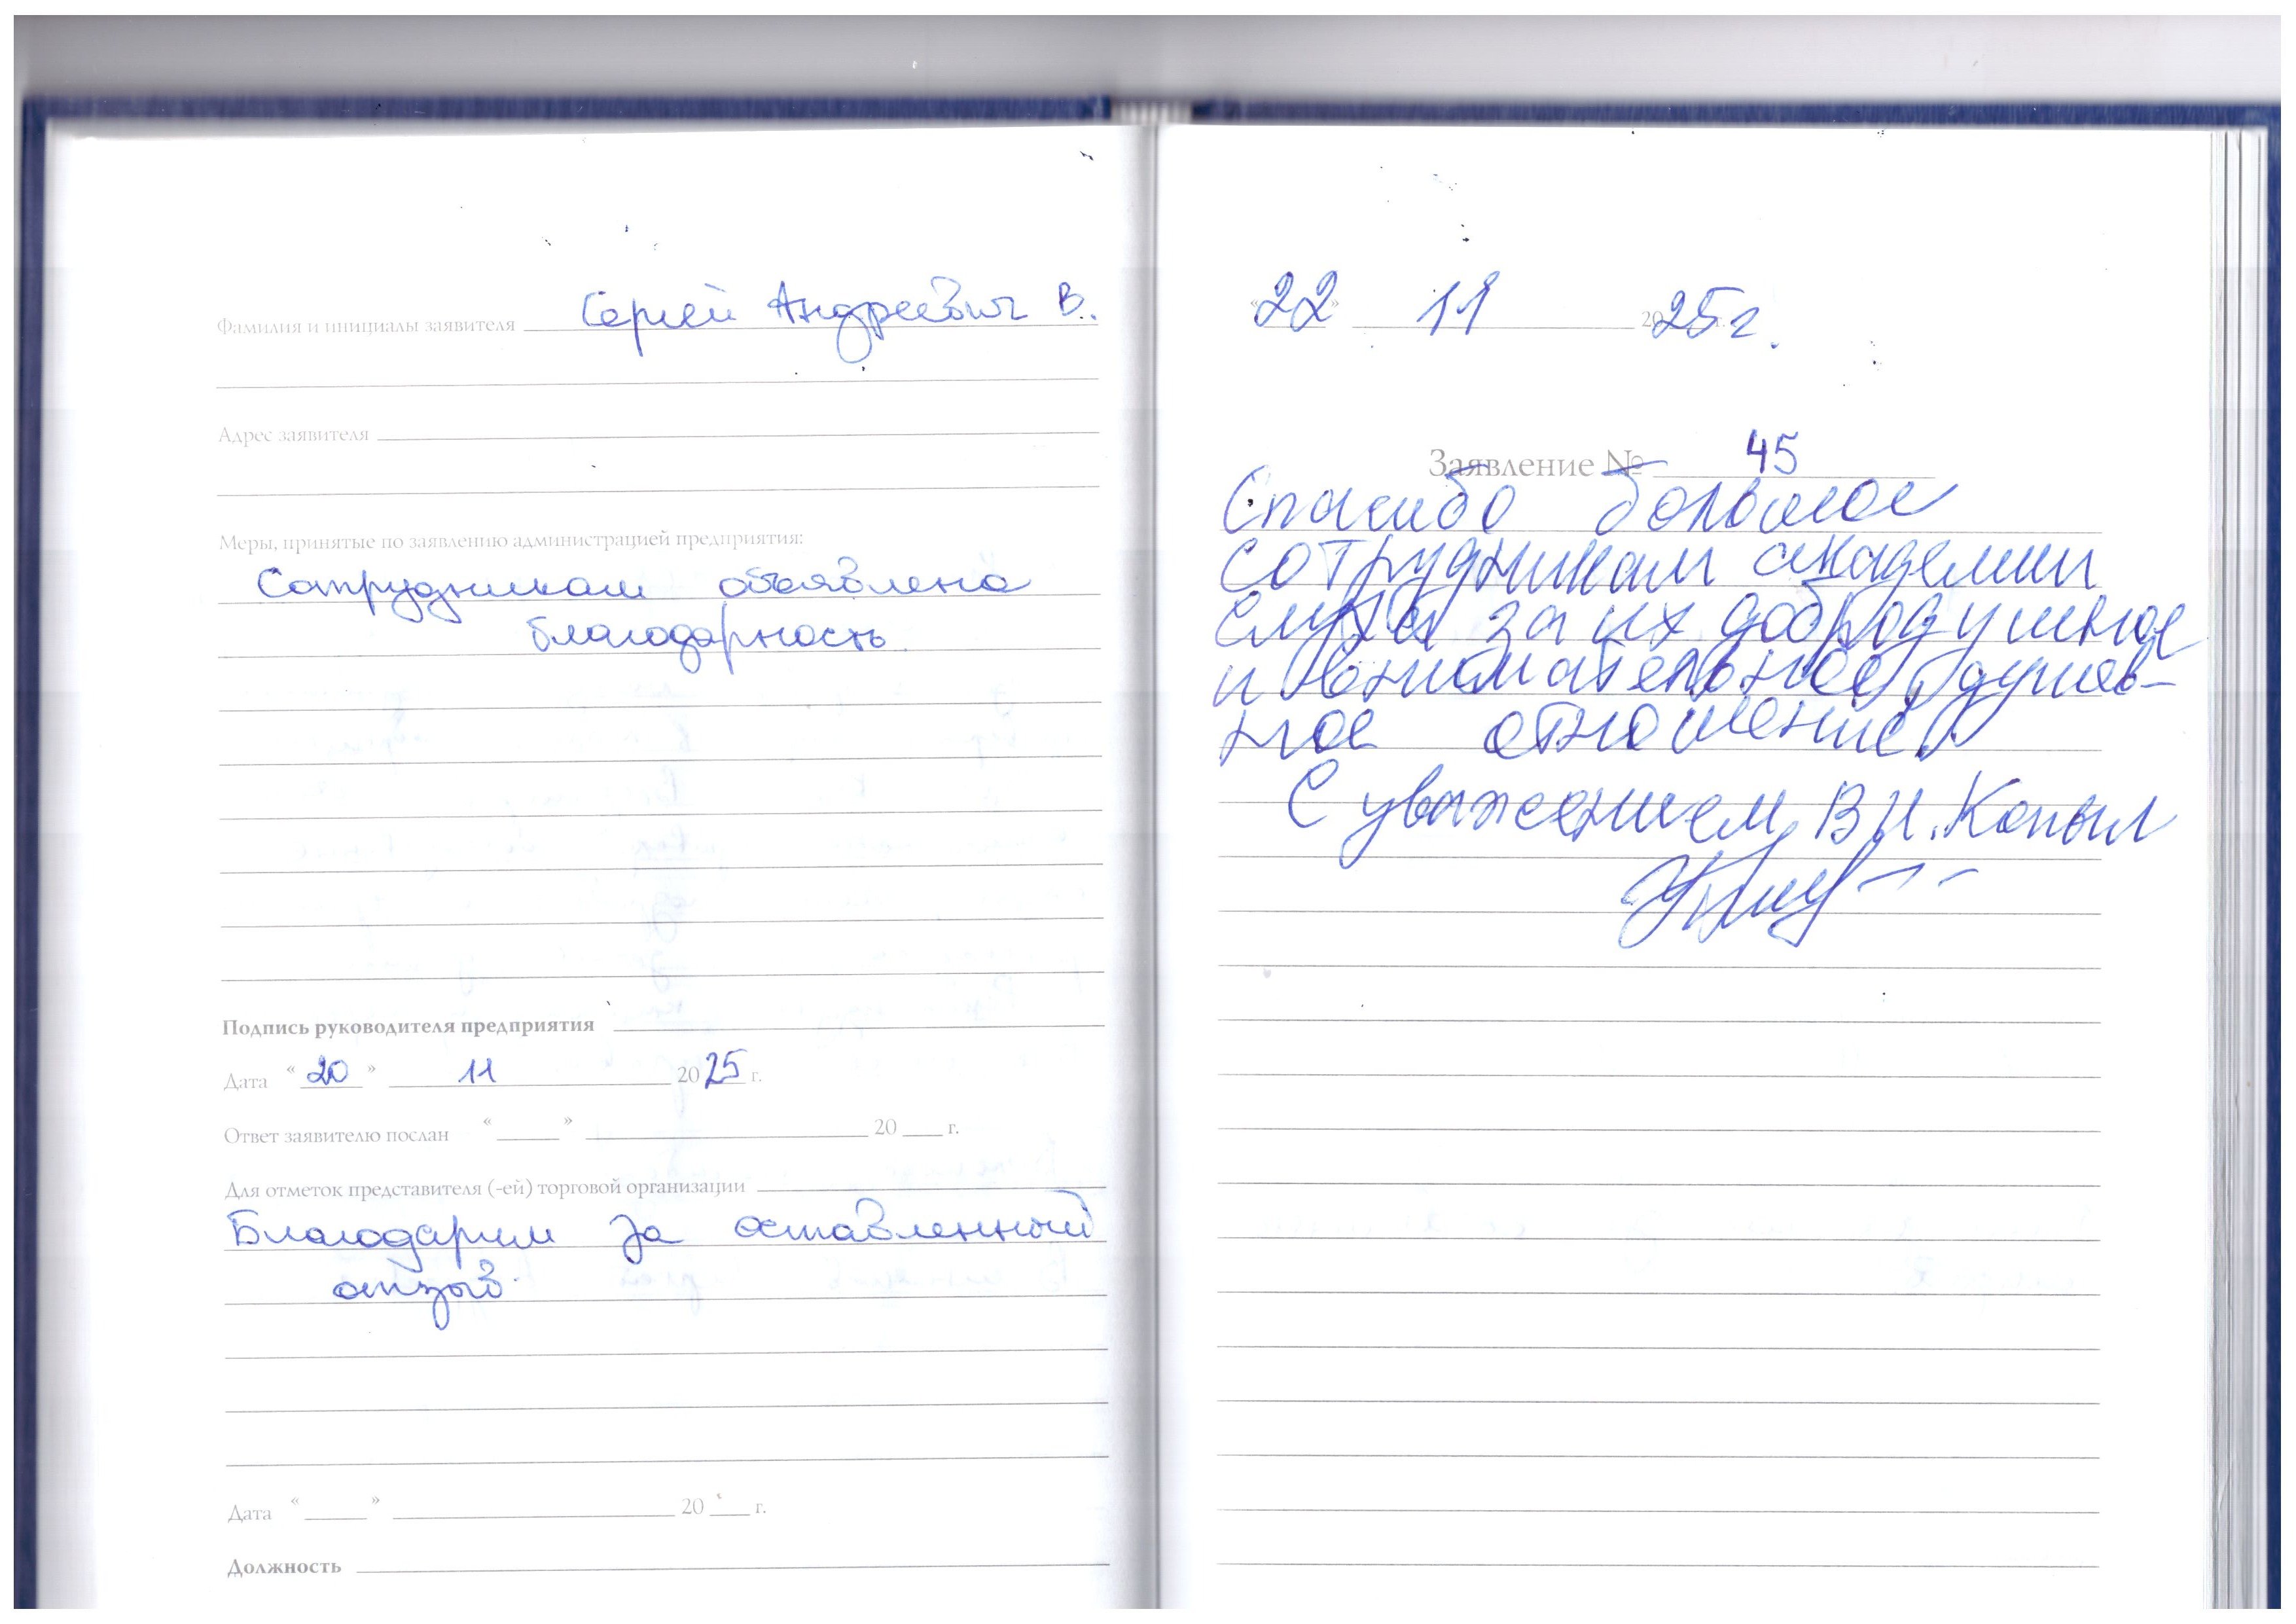 Фамилия и инициалы заявителя Сергей Андреевич В.
Адрес заявителя
Меры, принятые по заявлению администрацией предприятия:
Сотрудникам объявлена
благодарность
Подпись руководителя предприятия
Дата «20» 11 2025 г.
Ответ заявителю послан « » 20 г.
Для отметок представителя (-ей) торговой организации
Благодарим за оставленный
отзыв
Дата « » 20 г.
Должность
«22» 11 2025 г.
Заявление № 45
Спасибо большое
сотрудникам академии
слуха за их добродушное
и внимательное, душев-
ное отношение.
С уважением, В И. Копыл